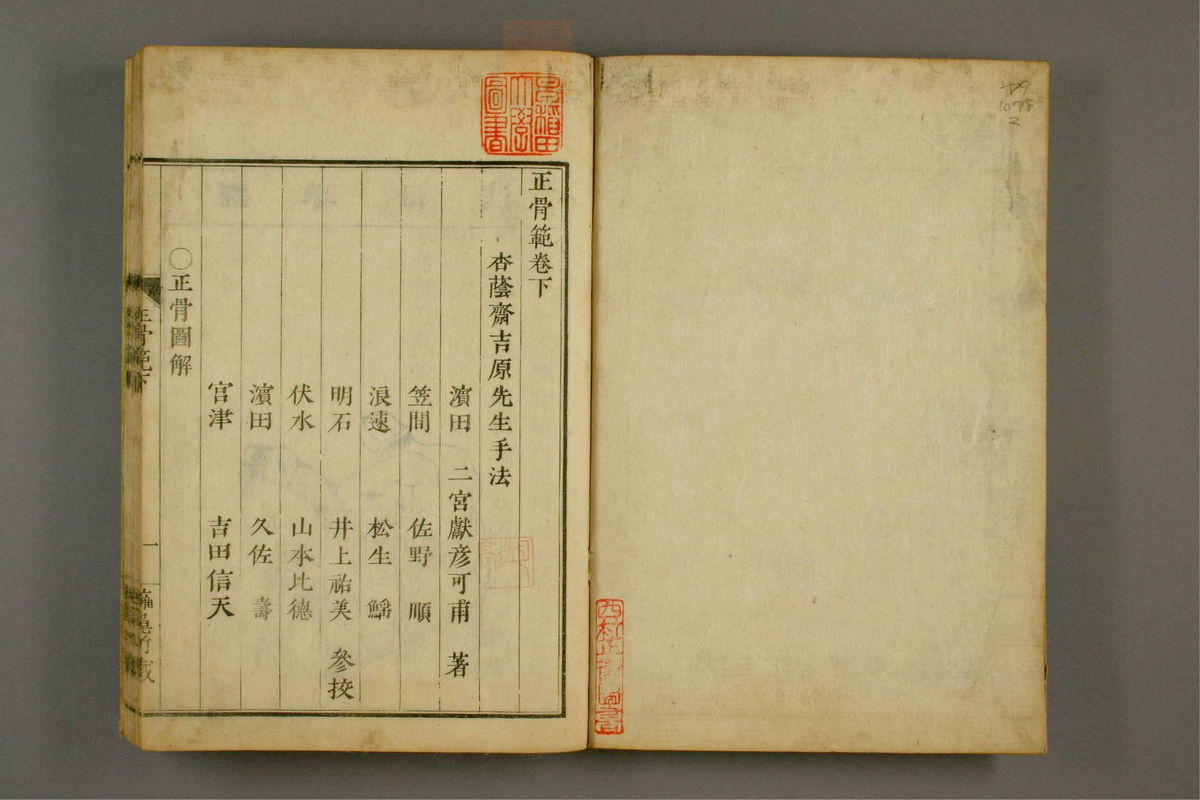 29
1078
2
早稲田大學圖書
正骨範卷下
杏蔭齋吉原先生手法
濱田 二宮獻彥可甫 著
笠間 佐野 順
浪速 松生 鰩
明石 井上祐美 參挍
伏水 山本比德
濱田 久佐 壽
宮津 吉田信天
〇正骨圖解
正骨範下
一